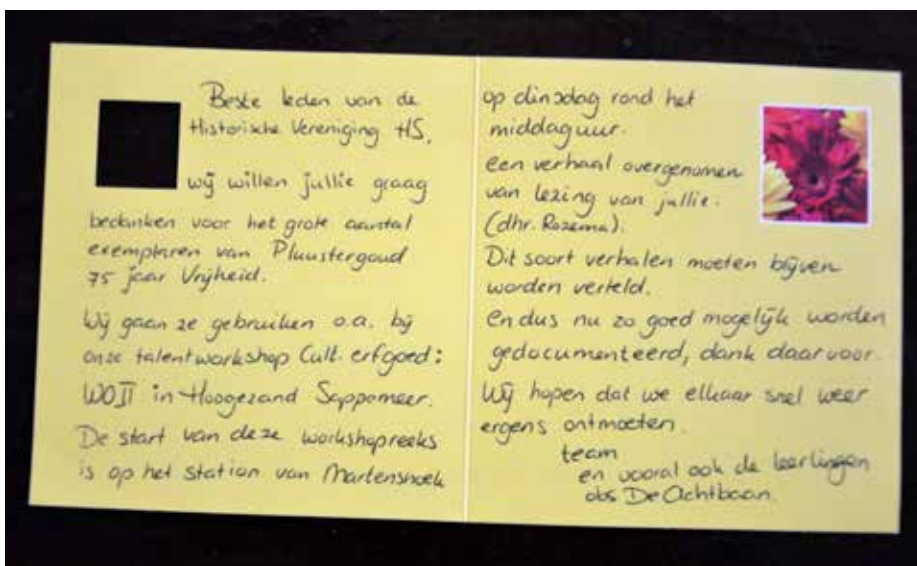 Beste leden van de
Historische Vereniging HS,
wij willen jullie graag
bedanken voor het grote aantal
exemplaren van Pluustergoud
75 jaar Vrijheid.
Wij gaan ze gebruiken o.a. bij
onze talentworkshop Cult. erfgoed:
WOII in Hoogezand Sappemeer.
De start van deze workshopreeks
is op het station van Martenshoek
op dinsdag rond het
middaguur.
een verhaal overgenomen
van lezing van jullie.
(dhr. Rozema).
Dit soort verhalen moeten blijven
worden verteld.
en dus nu zo goed mogelijk worden
gedocumenteerd, dank daarvoor.
Wij hopen dat we elkaar snel weer
ergens ontmoeten.
team
en vooral ook de leerlingen
obs De Achtbaan.